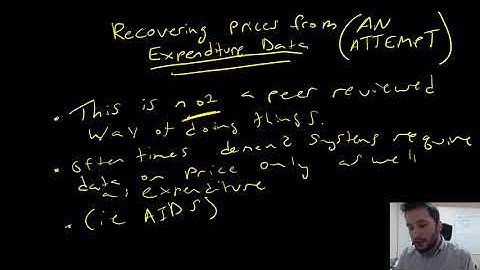 Recovering Prices from (AN
Expenditure Data ATTEMPT)
• This is not a peer reviewed
way of doing things.
• Often times demand systems require
data on price only as well
as expenditure
• (ie AIDS)